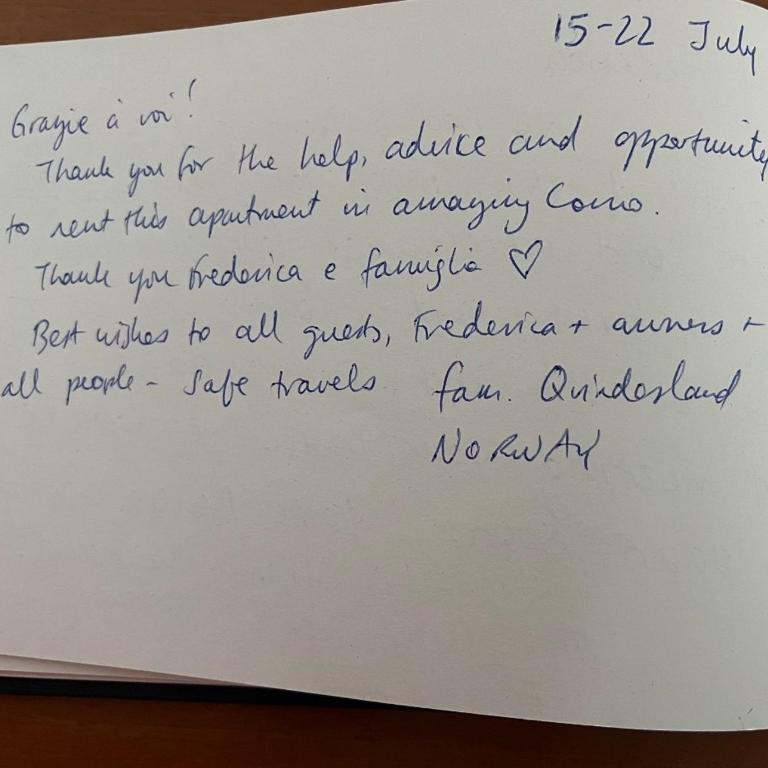 15-22 July
Grazie à voi!
Thank you for the help, advice and opportunity
to rent this apartment in amazing Como.
Thank you Frederica e famiglia ♡
Best wishes to all guests, Frederica + owners +
all people - Safe travels fam.
NORWAY